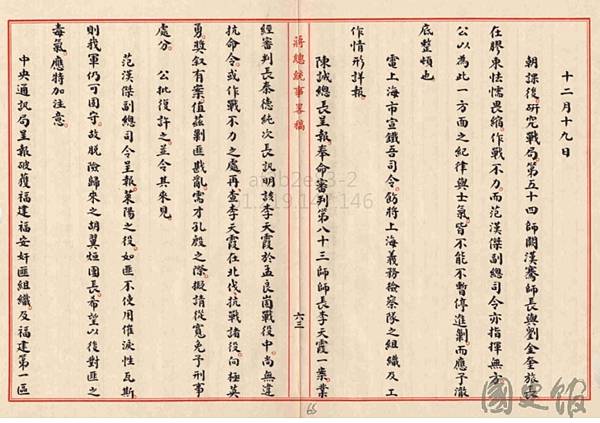 十二月十九日
朝課後，研究戰局。第五十四師闕漢騫師長與劉金奎旅長
在膠東怯懦畏縮，作戰不力，而范漢傑副總司令亦指揮無方，
公以為此一方面之紀律與士氣，皆不能不暫停進剿，而應予澈
底整頓也。
電上海市宣鐵吾司令，飭將上海義務檢察隊之組織及工
作情形詳報。
陳誠總長呈報，奉命審判第八十三師師長李天霞一案，業
蔣總統事畧稿
六三
經審判長秦德純次長訊明，該李天霞於孟良崮戰役中，尚無違
抗命令，或作戰不力之處，再查李天霞在北伐抗戰諸役，向極英
勇，獎叙有案，值茲剿匪戡亂，需才孔殷之際，擬請從寬免予刑事
處分。 公批復許之，並令其來見。
范漢傑副總司令呈報，萊陽之役，如匪不使用催淚性瓦斯，
則我軍仍可固守，故脫險歸來之胡翼烜團長，希望以後對匪之
毒氣，應特加注意。
中央通訊局呈報破獲福建福安奸匪組織及福建第一區
66
國史館